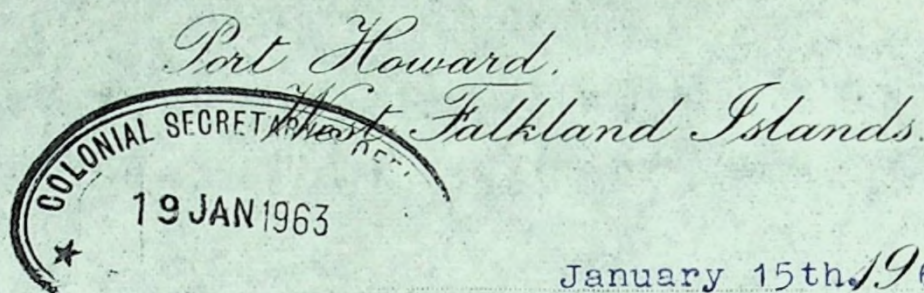 Port Howard.
West Falkland Islands.
COLONIAL SECRETARY'S OFFI
19 JAN 1963
January 15th. 19